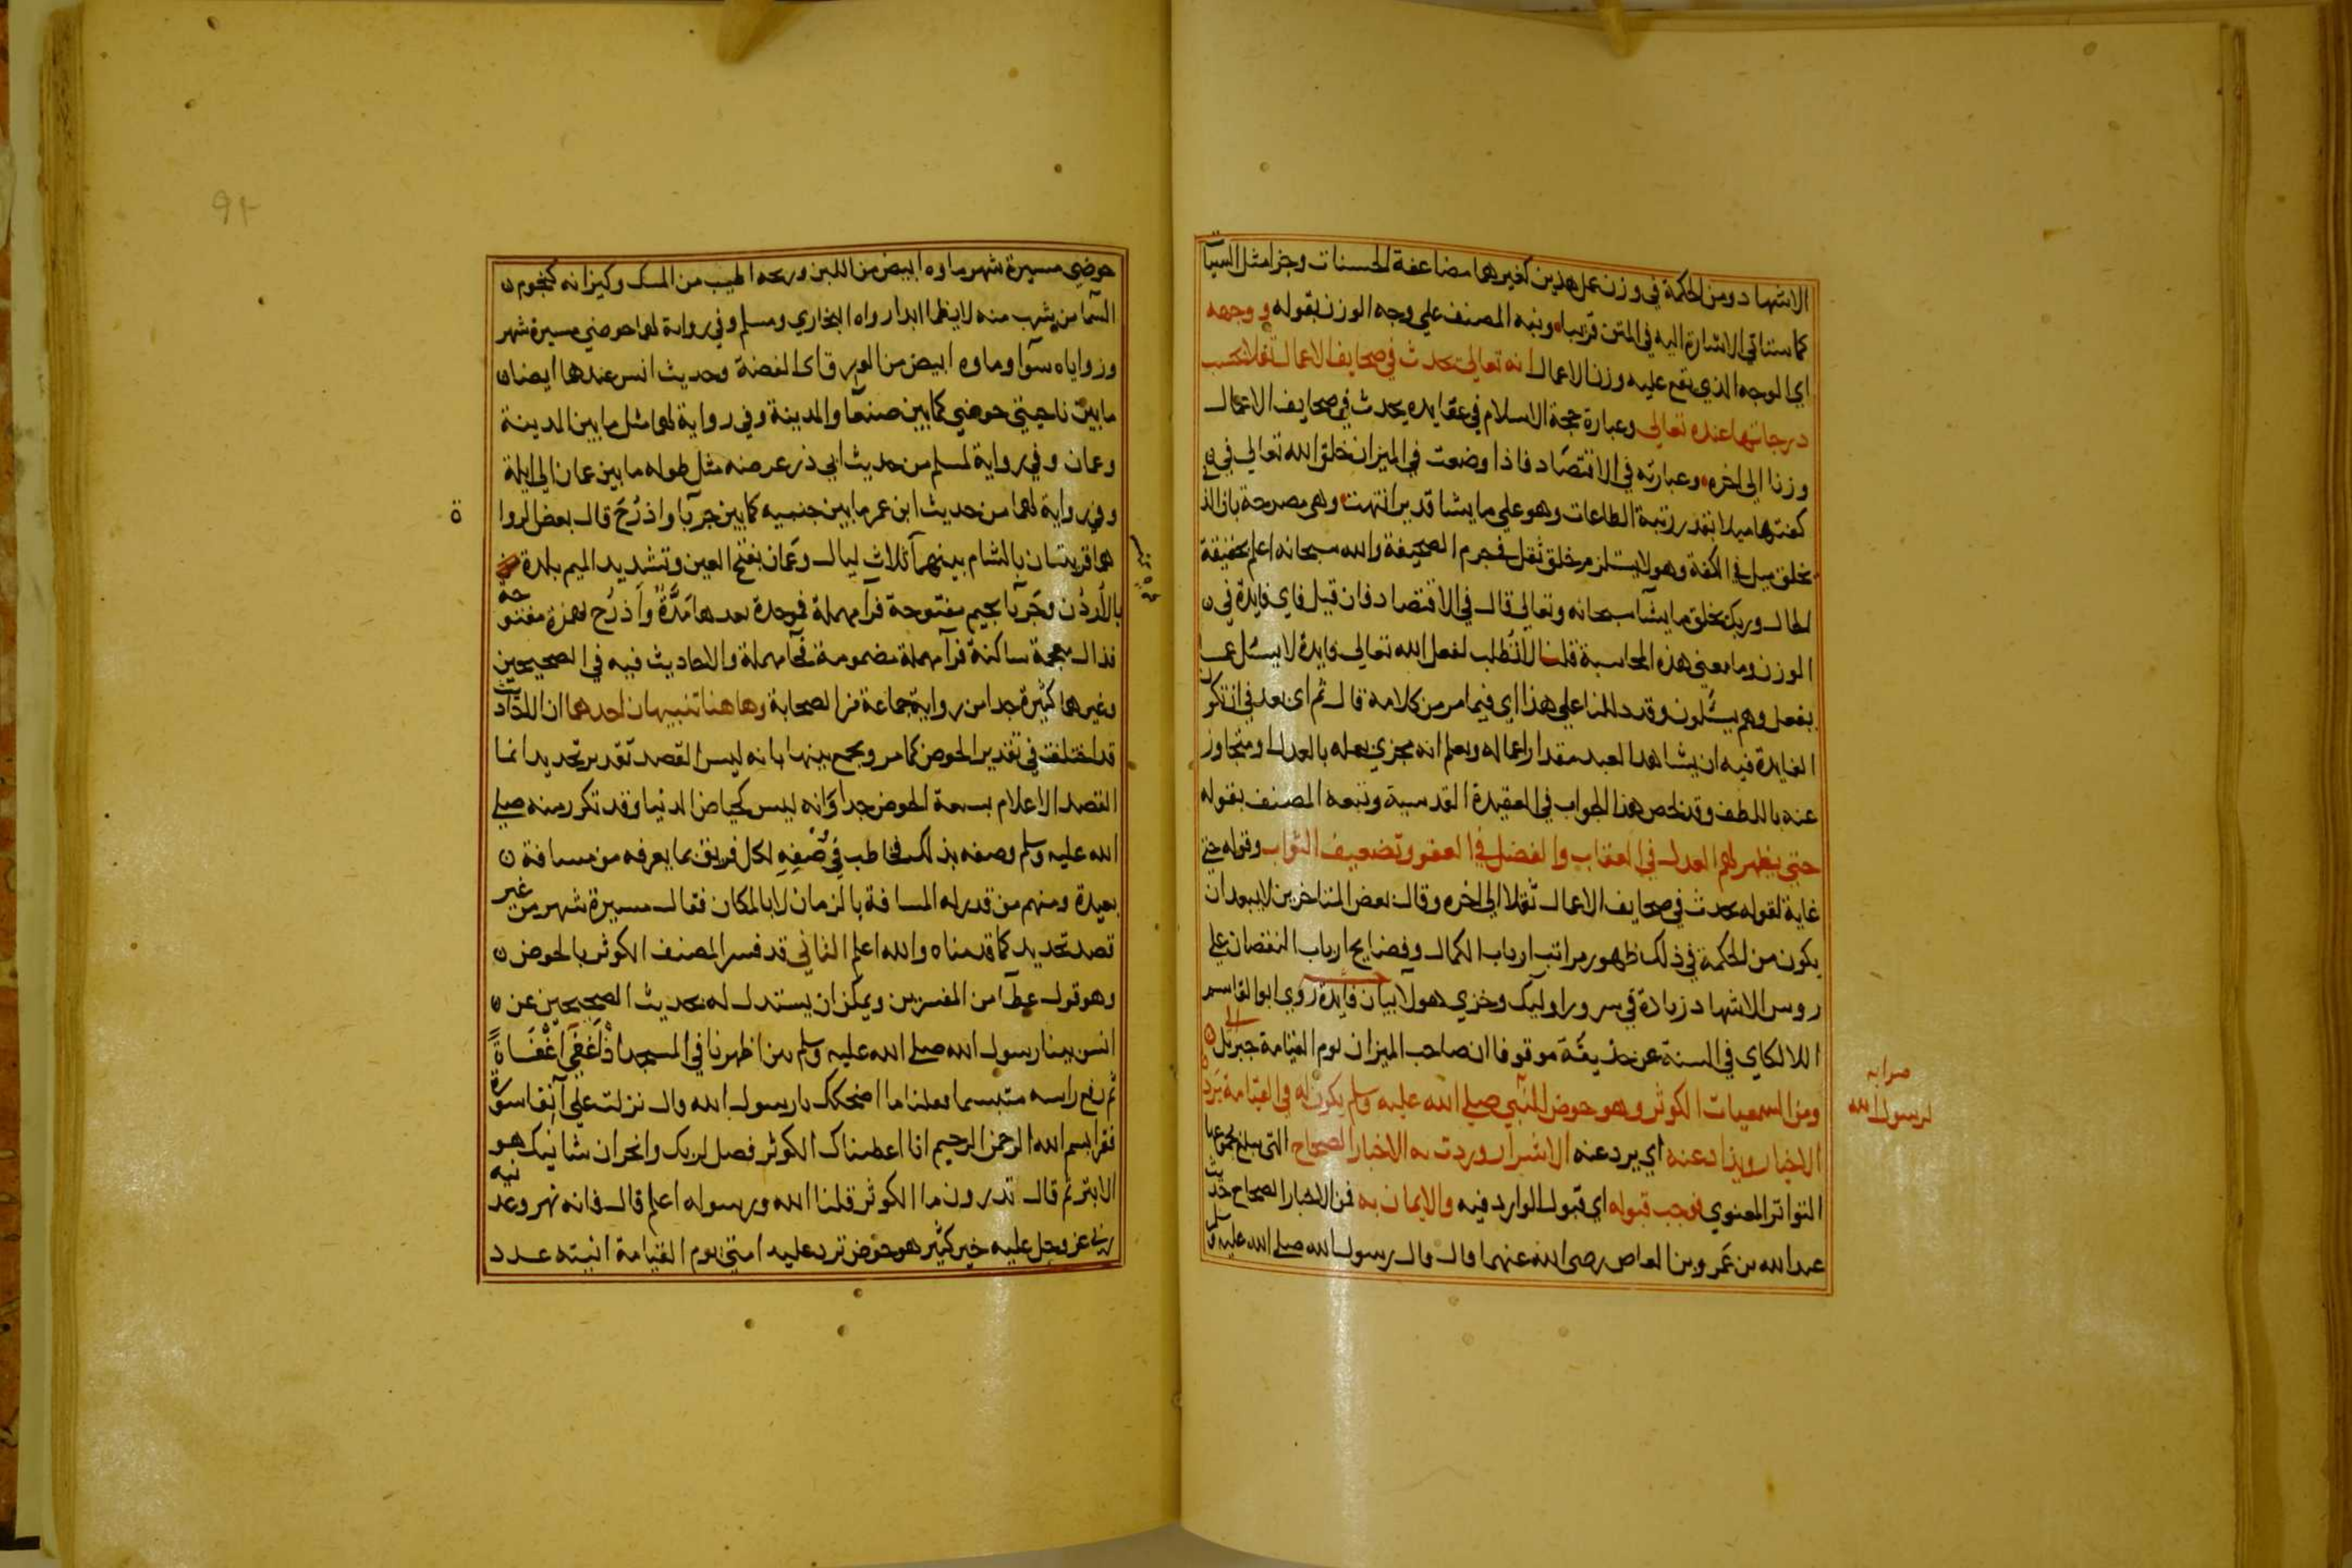 الاشهاد ومن الحكمة في وزن عمل هذين كغيرهما مضاعفة الحسنات وجزا مثل السيآت
كما ستاتي الاشارة اليه في المتن قريبا ونبه المصنف علي وجه الوزن بقوله ووجهه
اي الوجه الذي يقع عليه وزن الاعمال انه تعالي يحدث في صحايف الاعمال ثقلا بحسب
درجاتها عنده تعالي وعبارة حجة الاسلام في عقايده يحدث في صحايف الاعمال
وزنا الي اخره وعبارته في الاقتصاد فاذا وضعت في الميزان خلق الله تعالي في
كفتها ميلا بقدر رتبة الطاعات وهو علي ما يشا قدير انتهت وهي مصرحة بان الذ
يخلق ميل في الكفة وهو لا يستلزم خلق ثقل في جرم الصحيفة والله سبحانه اعلم بحقيقة
الحال وربك يخلق ما يشآ سبحانه وتعالي قال في الاقتصاد فان قيل فاي فايدة في
الوزن وما معني هذه المحاسبة قلنا لا تطلب لفعل الله تعالي فايدة لا يسئل عما
يفعل وهم يسئلون وقد دللنا علي هذا اي فيما مر من كلامه قال ثم اي بعد في ان تكون
الفايدة فيه ان يشاهد العبد مقدار اعماله ويعلم انه مجزي بعمله بالعدل او متجاوز
عنه باللطف وقد لخص هذا الجواب في العقيدة القدسية وتبعه المصنف بقوله
حتي يظهر لهم العدل في العقاب والفضل في العفو وتضعيف الثواب وقوله حتي
غاية لقوله يحدث في صحايف الاعمال ثقلا الي اخره وقال بعض المتاخرين لا يبعد ان
يكون من الحكمة في ذلك ظهور مراتب ارباب الكمال وفضايح ارباب النقصان علي
روس الاشهاد زيادة في سرور اوليك وخزي هولا بيان فايدة روي ابو القاسم
اللالكاي في السنة عن حذيفة موقوفا ان صاحب الميزان يوم القيامة جبريل
ومن السمعيات الكوثر وهو حوض للنبي صلي الله عليه وسلم يكون له في القيامة يرد
صرابه
لرسول الله
الاخيار ويذاد عنه اي يرد عنه الاشرار وردت به الاخبار الصحاح التي يبلغ مجموعها
التواتر المعنوي فوجب قبوله اي قبول الوارد فيه والايمان به فمن الاخبار الصحاح حديث
عبد الله بن عمرو بن العاص رضي الله عنهما قال قال رسول الله صلي الله عليه وسلم
حوضي مسيرة شهر ماوه ابيض من اللبن وريحه اطيب من المسك وكيزانه كنجوم
السما من يشرب منه لا يظما ابدا رواه البخاري ومسلم وفي رواية لهما حوضي مسيرة شهر
وزواياه سوآ وماوه ابيض من الورق اي الفضة وحديث انس عندهما ايضا
ما بين ناحيتي حوضي كما بين صنعا والمدينة وفي رواية لهما مثل ما بين المدينة
وعمان وفي رواية لمسلم من حديث ابي ذر عرضه مثل طوله ما بين عمان الي ايلة
وفي رواية لهما من حديث ابن عمر ما بين جنبيه كما بين جربآ واذرح قال بعض الروا
ة
هما قريتان بالشام بينهما ثلاث ليال وعمان بفتح العين وتشديد الميم بلدة
بالاردن وجربآ بجيم مفتوحة فرآ مهملة فموحدة بعدها مدة واذرح بهمزة مفتوحة
فذال معجمة ساكنة فرآ مهملة مضمومة فحآ مهملة والاحاديث فيه في الصحيحين
وغيرهما كثيرة جدا من رواية جماعة من الصحابة وهاهنا تنبيهان احدهما ان الاحاديث
قد اختلفت في تقدير الحوض كما مر ويجمع بينها بانه ليس القصد تقدير تحديد انما
القصد الاعلام بسعة الحوض جدا وانه ليس كحياض الدنيا وقد تكرر منه صلي
الله عليه وسلم وصفه بذلك فخاطب في وصفه لكل فريق بما يعرفه من مسافة
بعيدة ومنهم من قدر له المسافة بالزمان لا بالمكان فقال مسيرة شهر من غير
قصد تحديد كما قدمناه والله اعلم الثاني قد فسر المصنف الكوثر بالحوض
وهو قول عطآ من المفسرين ويمكن ان يستدل له بحديث الصحيحين عن
انس بينا رسول الله صلي الله عليه وسلم بين اظهرنا في المسجد اذ اغفي اغفاة
ثم رفع راسه متبسما فقلنا ما اضحكك يا رسول الله قال نزلت علي آنفا سورة
فقرا بسم الله الرحمن الرحيم انا اعطيناك الكوثر فصل لربك وانحر ان شانيك هو
الابتر ثم قال تدرون ما الكوثر قلنا الله ورسوله اعلم قال فانه نهر وعدنيه
ربي عز وجل عليه خير كثير هو حوض ترد عليه امتي يوم القيامة انيته عدد